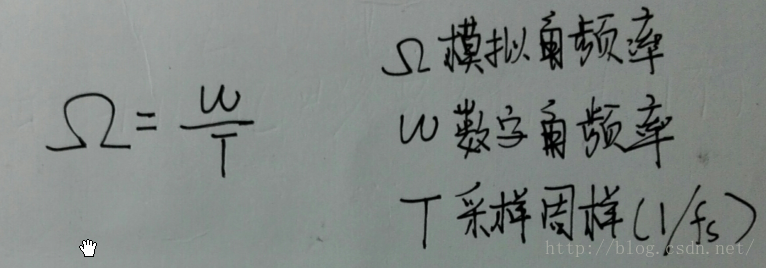 Ω = w/T
Ω 模拟角频率
w 数字角频率
T 采样周样(1/fs)
http://blog.csdn.net/